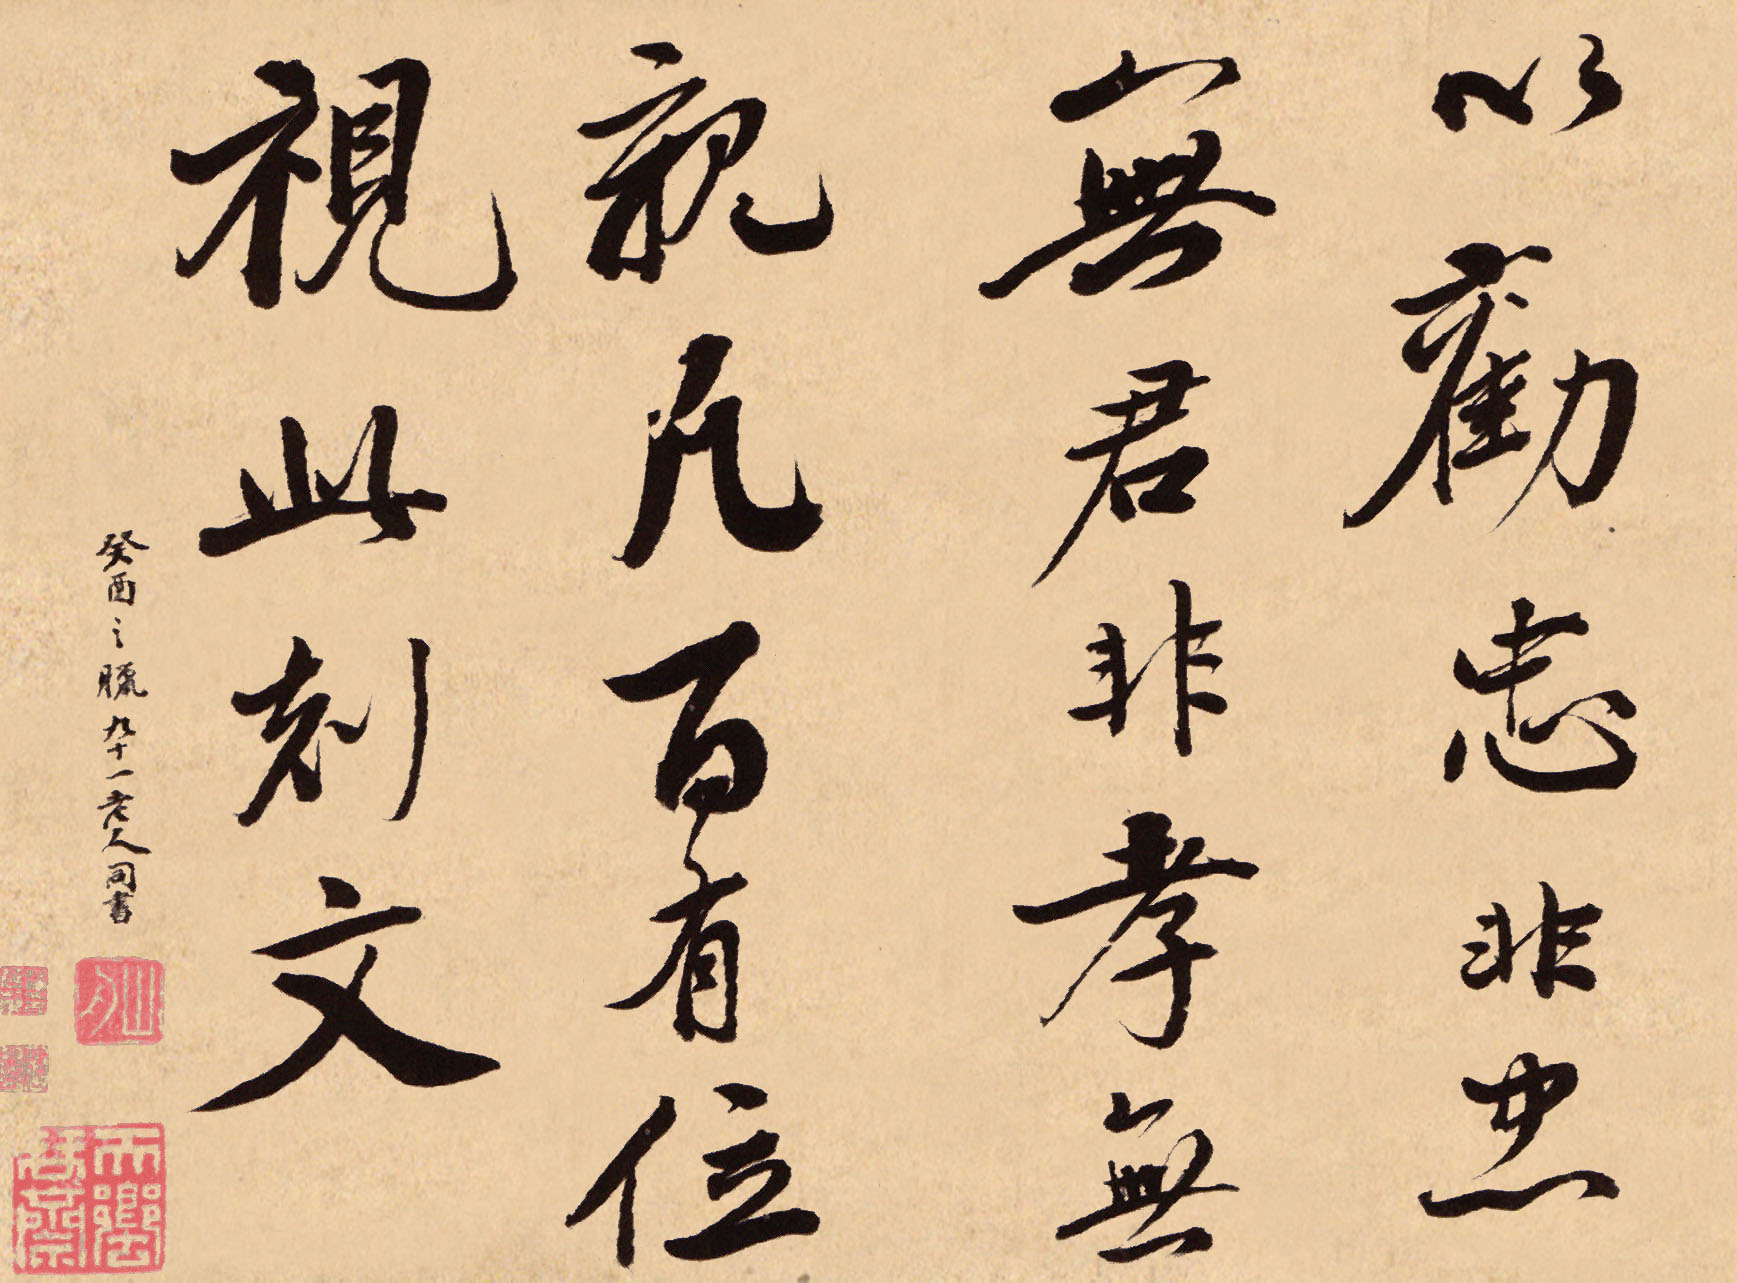 以勸忠非忠
無君非孝無
親凡百有位
視此刻文
癸酉之臘九十一老人同書
山舟